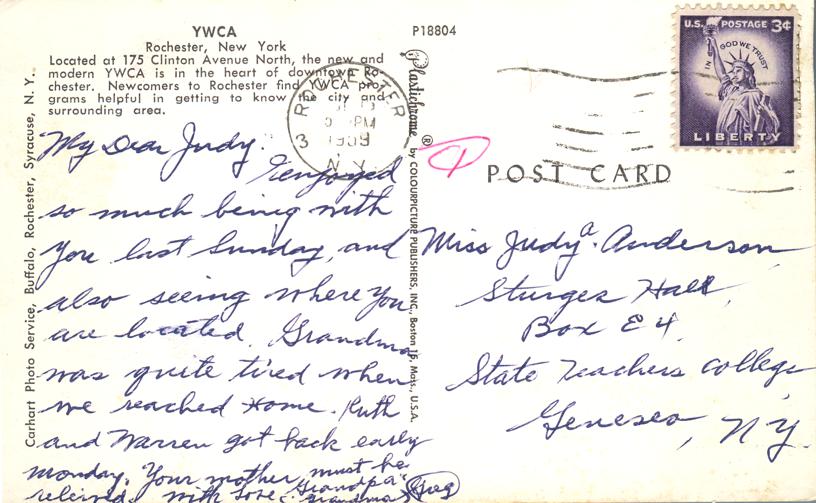 YWCA
Rochester, New York
Located at 175 Clinton Avenue North, the new and
modern YWCA is in the heart of downtown Ro-
chester. Newcomers to Rochester find YWCA pro-
grams helpful in getting to know the city and
surrounding area.
P18804
Carhart Photo Service, Buffalo, Rochester, Syracuse, N. Y.
Plastichrome ® by COLOURPICTURE PUBLISHERS, INC., Boston 15, Mass., U.S.A.
ROCHESTER
PM
1959
N.Y.
3
U.S. POSTAGE 3¢
IN GOD WE TRUST
LIBERTY
POST CARD
My Dear Judy.
I enjoyed
so much being with
you last Sunday, and
also seeing where you
are located. Grandma
was quite tired when
we reached home. Ruth
and Warren got back early
Monday. Your mother must be
relieved. with love. Grandpa
Grandma
Miss Judy A. Anderson
Sturges Hall,
Box E4
State Teachers College
Geneseo, NY.